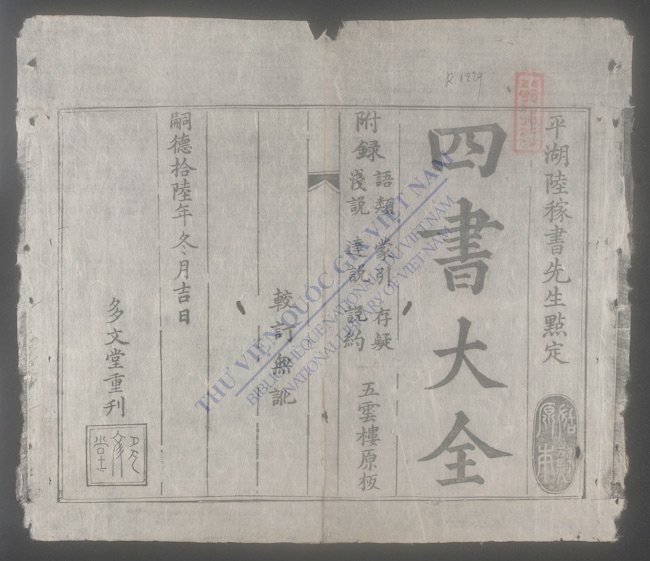 R 1229
平湖陸稼書先生點定
四書大全
附録 語類 蒙引 存疑
淺説 達説 説約
五雲樓原板
較訂無訛
嗣德拾陸年冬月吉日
多文堂重刊
THƯ VIỆN QUỐC GIA VIỆT NAM
BIBLIOTHEQUE NATIONALE DU VIETNAM
NATIONAL LIBRARY OF VIETNAM